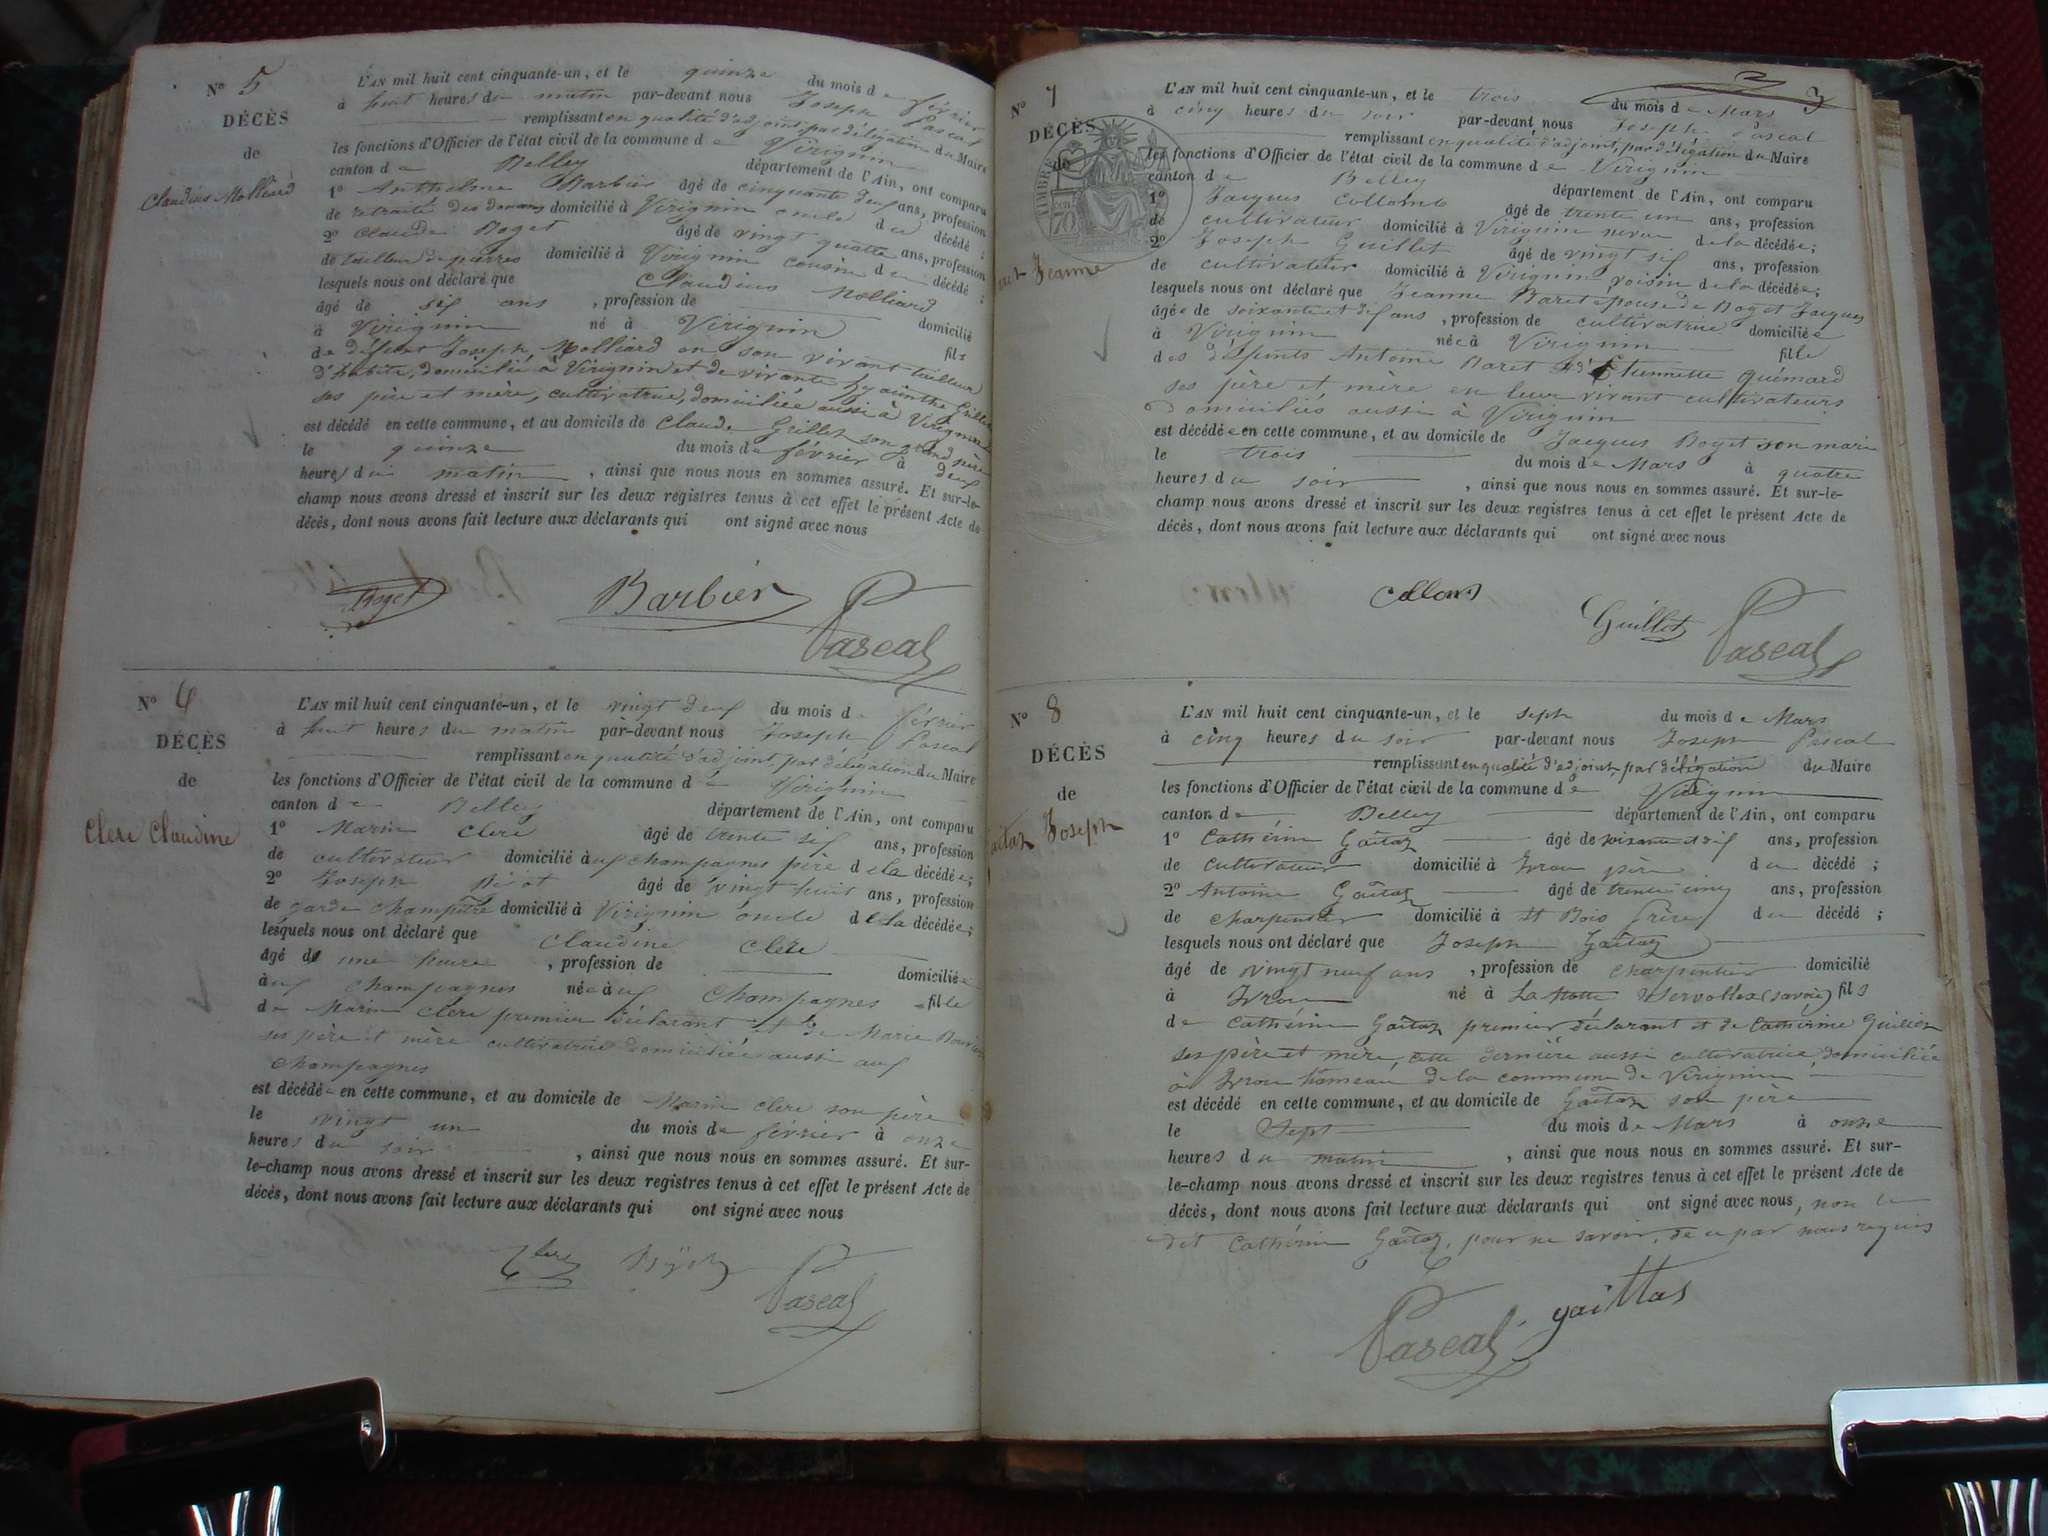 N° 5
DÉCÈS
de
Claudius Molliard
L'AN mil huit cent cinquante-un, et le quinze du mois de février
à huit heures du matin par-devant nous Joseph Pascal
remplissant en qualité d'adjoint par délégation du Maire
les fonctions d'Officier de l'état civil de la commune de Virignin
canton de Belley département de l'Ain, ont comparu
1° Anthelme Barbier âgé de cinquante deux ans, profession
de retraité des douanes domicilié à Virignin oncle du décédé ;
2° Claude Boget âgé de vingt quatre ans, profession
de tailleur de pierres domicilié à Virignin cousin du décédé ;
lesquels nous ont déclaré que Claudius Molliard
âgé de six ans , profession de domicilié
à Virignin né à Virignin fils
de défunt Joseph Molliard en son vivant tailleur
d'habits, domicilié à Virignin et de vivante hyacinthe Grillet
ses père et mère, cultivatrice, domiciliée aussi à Virignin
est décédé en cette commune, et au domicile de Claude Grillet son grand père
le quinze du mois de février à deux
heures du matin , ainsi que nous nous en sommes assuré. Et sur-le-
champ nous avons dressé et inscrit sur les deux registres tenus à cet effet le présent Acte de
décès, dont nous avons fait lecture aux déclarants qui ont signé avec nous
Boget Barbier Pascal
N° 6
DÉCÈS
de
Clere Claudine
L'AN mil huit cent cinquante-un, et le vingt deux du mois de février
à huit heures du matin par-devant nous Joseph Pascal
remplissant en qualité d'adjoint par délégation du Maire
les fonctions d'Officier de l'état civil de la commune de Virignin
canton de Belley département de l'Ain, ont comparu
1° Marin Clere âgé de trente six ans, profession
de cultivateur domicilié à ux champagnes père de la décédée ;
2° Joseph âgé de vingt huit ans, profession
de garde champêtre domicilié à Virignin oncle de la décédée ;
lesquels nous ont déclaré que Claudine Clere
âgé de une heure , profession de domiciliée
à ux champagnes née à ux champagnes fille
de Marin Clere premier déclarant et de Marie
ses père et mère cultivatrice domiciliée aussi aux
champagnes
est décédée en cette commune, et au domicile de Marin Clere son père
le vingt un du mois de février à onze
heures du soir , ainsi que nous nous en sommes assuré. Et sur-
le-champ nous avons dressé et inscrit sur les deux registres tenus à cet effet le présent Acte de
décès, dont nous avons fait lecture aux déclarants qui ont signé avec nous
Clere Pascal
3
N° 7
DÉCÈS
de
Jeanne
TIMBRE
L'AN mil huit cent cinquante-un, et le trois du mois de Mars
à cinq heures du soir par-devant nous Joseph Pascal
remplissant en qualité d'adjoint, par délégation du Maire
les fonctions d'Officier de l'état civil de la commune de Virignin
canton de Belley département de l'Ain, ont comparu
1° Jacques Collomb âgé de trente un ans, profession
de cultivateur domicilié à Virignin neveu de la décédée ;
2° Joseph Guillet âgé de vingt six ans, profession
de cultivateur domicilié à Virignin voisin de la décédée ;
lesquels nous ont déclaré que Jeanne Baret épouse de Boget Jacques
âgée de soixante et dix ans , profession de cultivatrice domiciliée
à Virignin née à Virignin fille
des défunts Antoine Baret et d'Etiennette Quémard
ses père et mère en leur vivant cultivateurs
domiciliés aussi à Virignin
est décédée en cette commune, et au domicile de Jacques Boget son mari
le trois du mois de Mars à quatre
heures du soir , ainsi que nous nous en sommes assuré. Et sur-le-
champ nous avons dressé et inscrit sur les deux registres tenus à cet effet le présent Acte de
décès, dont nous avons fait lecture aux déclarants qui ont signé avec nous
Collomb Guillet Pascal
N° 8
DÉCÈS
de
Joseph
L'AN mil huit cent cinquante-un, et le sept du mois de Mars
à cinq heures du soir par-devant nous Joseph Pascal
remplissant en qualité d'adjoint, par délégation du Maire
les fonctions d'Officier de l'état civil de la commune de Virignin
canton de Belley département de l'Ain, ont comparu
1° Cathérin Gaîtaz âgé de soixante et dix ans, profession
de cultivateur domicilié à Ivrou père du décédé ;
2° Antoine Gaîtaz âgé de trente cinq ans, profession
de charpentier domicilié à St Bois frère du décédé ;
lesquels nous ont déclaré que Joseph Gaîtaz
âgé de vingt neuf ans , profession de charpentier domicilié
à Ivrou né à La Motte Servollex (savoie) fils
de Cathérin Gaîtaz premier déclarant et de Cathérine
ses père et mère, cette dernière aussi cultivatrice domiciliée
à Ivrou hameau de la commune de Virignin
est décédé en cette commune, et au domicile de Gaîtaz son père
le Sept du mois de Mars à onze
heures du matin , ainsi que nous nous en sommes assuré. Et sur-
le-champ nous avons dressé et inscrit sur les deux registres tenus à cet effet le présent Acte de
décès, dont nous avons fait lecture aux déclarants qui ont signé avec nous, non le
dit Cathérin Gaîtaz, pour ne savoir, de ce par nous requis
Pascal gaittas